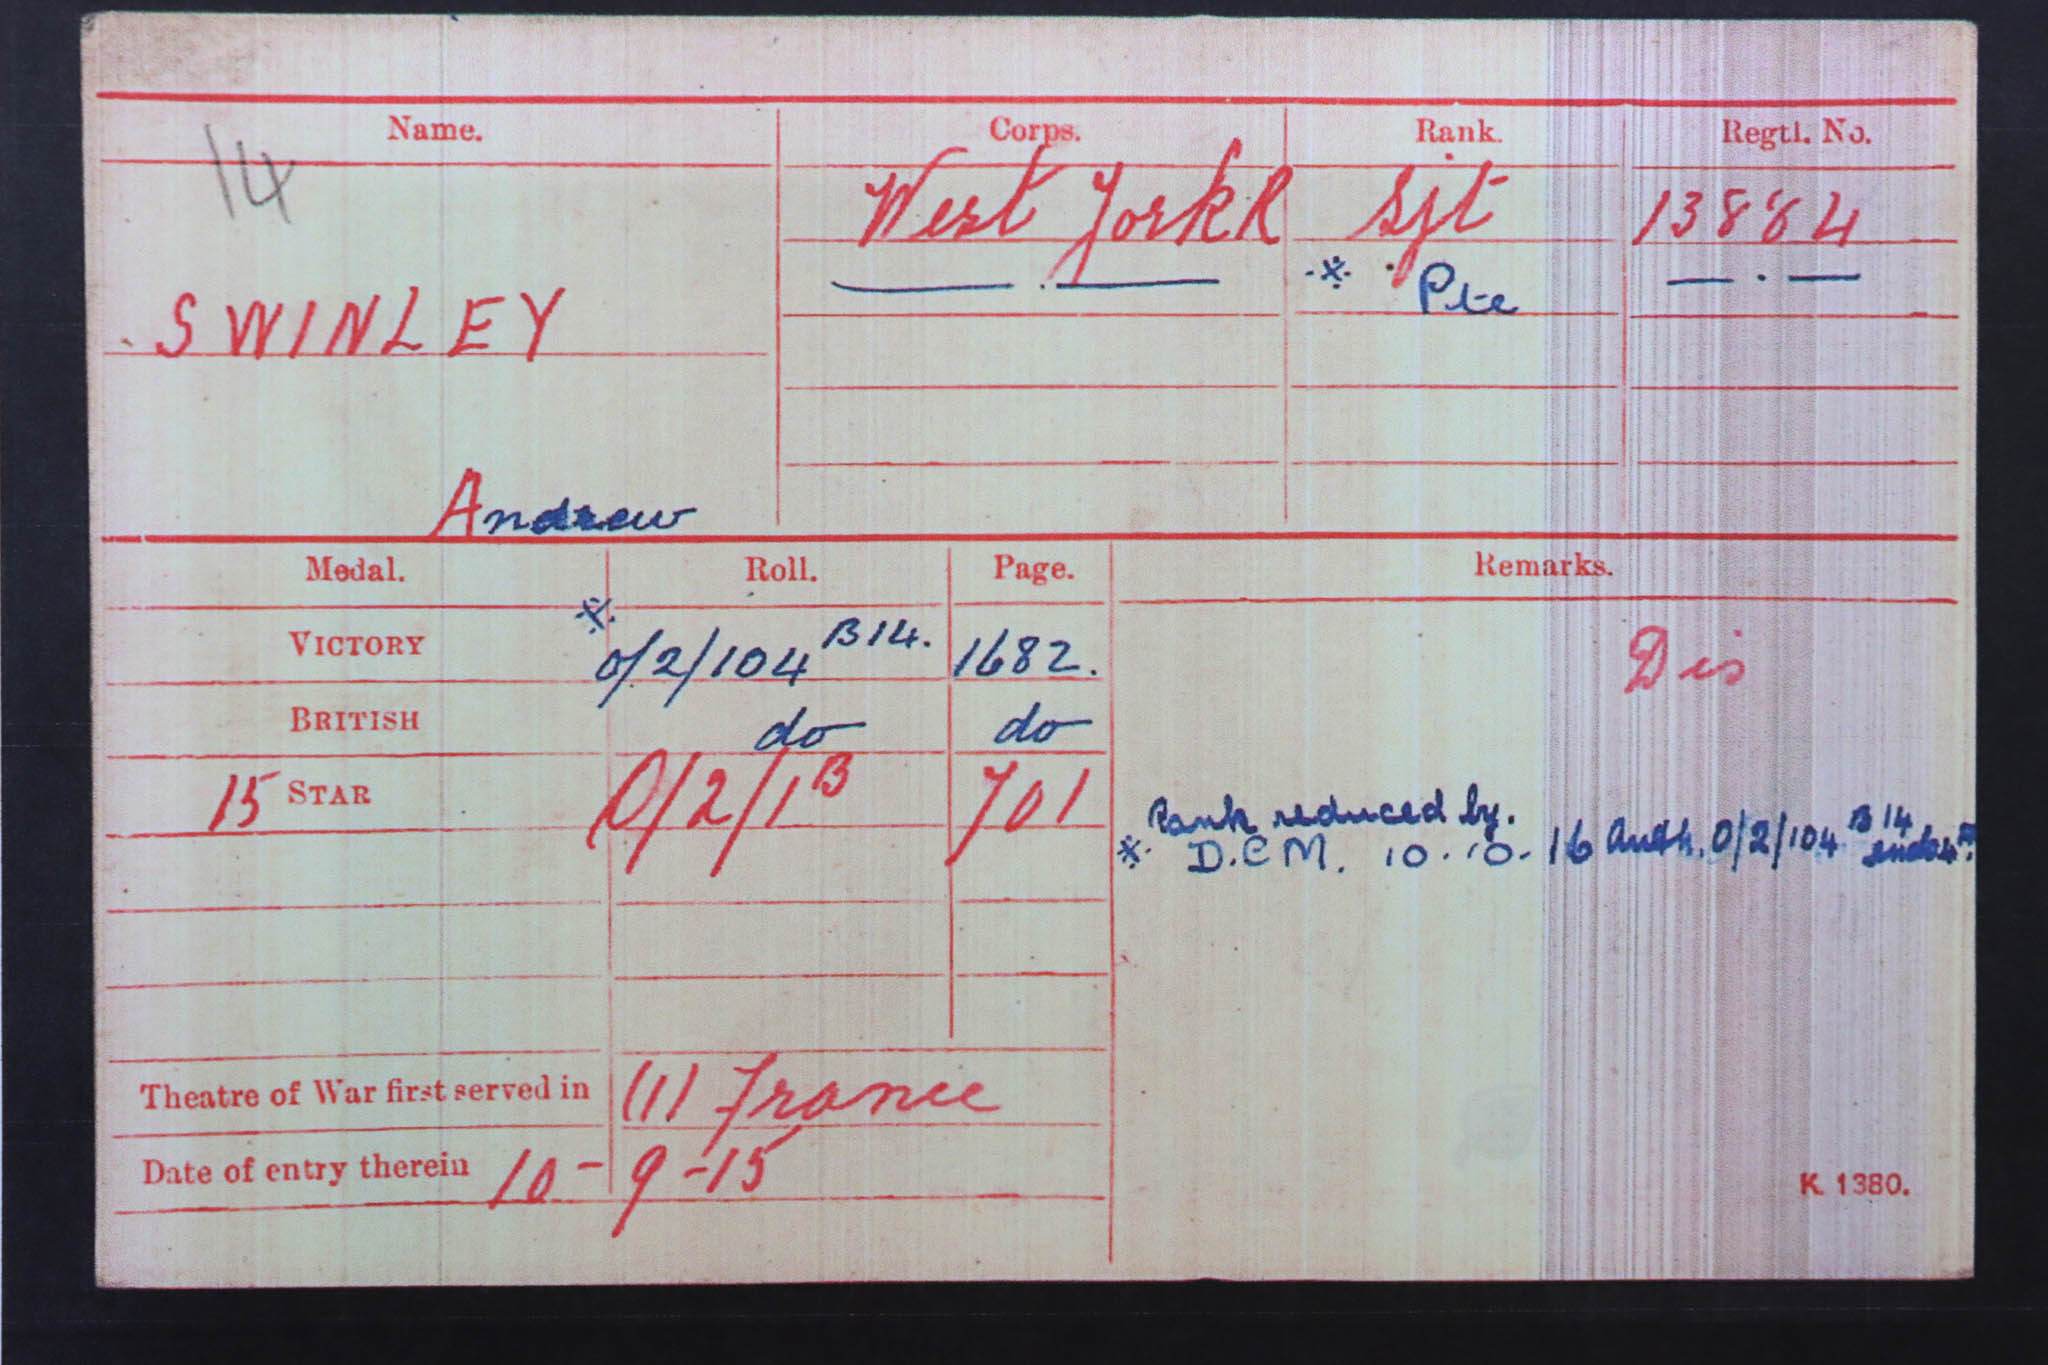 Name. Corps. Rank. Regtl. No.
14
West York R Sjt 13884
— . — ※ Pte — . —
SWINLEY
Andrew
Medal. Roll. Page. Remarks.
VICTORY ※ O/2/104 B14. 1682. Dis
BRITISH do do
15 STAR O/2/1B 701
Rank reduced by.
※ D.C.M. 10.10.16 Auth. O/2/104 B14
Theatre of War first served in (1) France
Date of entry therein 10-9-15
K. 1380.